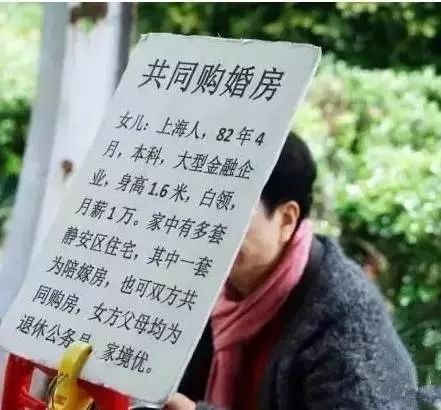 共同购婚房
女儿：上海人，82年4
月，本科，大型金融企
业，身高1.6米，白领，
月薪1万。家中有多套
静安区住宅，其中一套
为陪嫁房，也可双方共
同购房，女方父母均为
退休公务员，家境优。